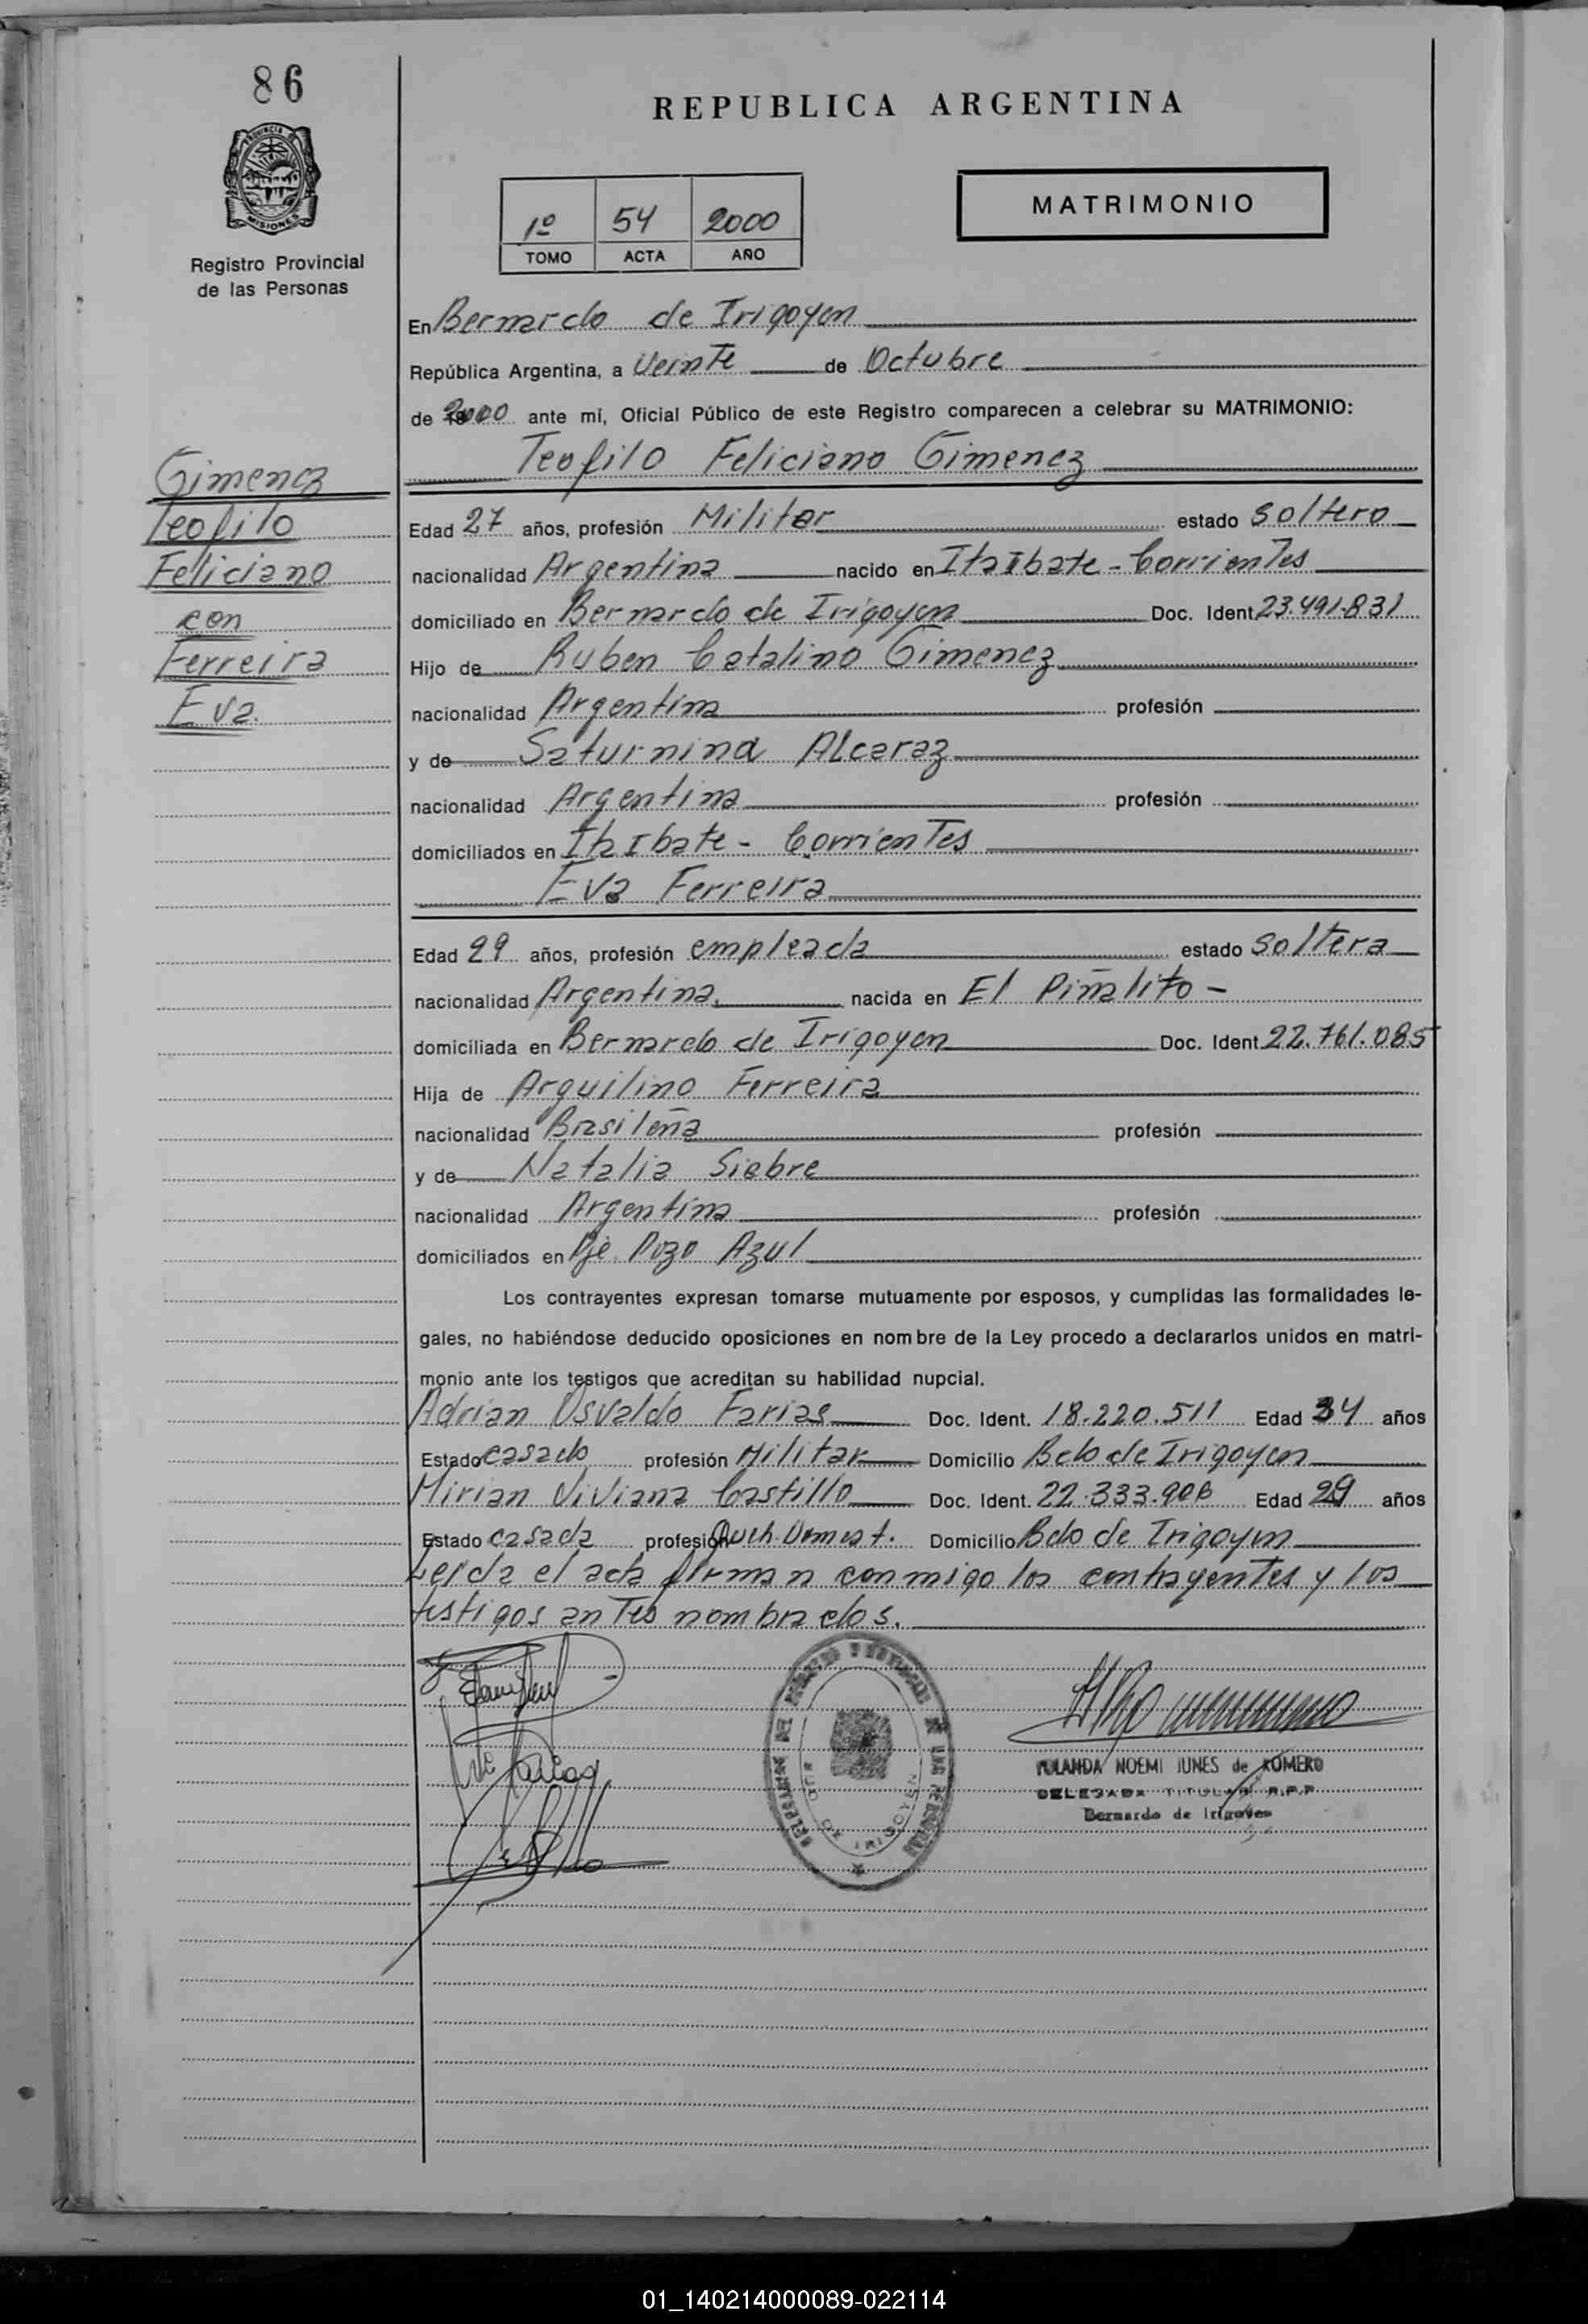 86
REPUBLICA ARGENTINA
PROVINCIA
MISIONES
Registro Provincial
de las Personas
MATRIMONIO
1º 54 2000
TOMO ACTA AÑO
En Bernardo de Irigoyen
República Argentina, a Veinte de Octubre
de 2000 ante mí, Oficial Público de este Registro comparecen a celebrar su MATRIMONIO:
Teofilo Feliciano Gimenez
Gimenez
Teofilo
Feliciano
con
Ferreira
Eva.
Edad 27 años, profesión Militar estado soltero
nacionalidad Argentina nacido en Itaibate - Corrientes
domiciliado en Bernardo de Irigoyen Doc. Ident. 23.491.831
Hijo de Ruben Catalino Gimenez
nacionalidad Argentina profesión
y de Saturnina Alcaraz
nacionalidad Argentina profesión
domiciliados en Ita Ibate - Corrientes
Eva Ferreira
Edad 29 años, profesión empleada estado soltera
nacionalidad Argentina. nacida en El Piñalito -
domiciliada en Bernardo de Irigoyen Doc. Ident. 22.761.085
Hija de Arquilino Ferreira
nacionalidad Brasileña profesión
y de Natalia Siebre
nacionalidad Argentina profesión
domiciliados en Pje. Pozo Azul
Los contrayentes expresan tomarse mutuamente por esposos, y cumplidas las formalidades le-
gales, no habiéndose deducido oposiciones en nombre de la Ley procedo a declararlos unidos en matri-
monio ante los testigos que acreditan su habilidad nupcial.
Adrian Osvaldo Farias Doc. Ident. 18.220.511 Edad 34 años
Estado casado profesión Militar Domicilio Bdo de Irigoyen
Mirian Viviana Castillo Doc. Ident. 22.333.908 Edad 29 años
Estado casada profesión Domest. Domicilio Bdo de Irigoyen
Leida el acta firman conmigo los contrayentes y los
testigos antes nombrados.
DE LAS PERSONAS
BDO DE IRIGOYEN
YOLANDA NOEMI JUNES de ROMERO
DELEGADA TITULAR R.P.P
Bernardo de Irigoyen
01_140214000089-022114